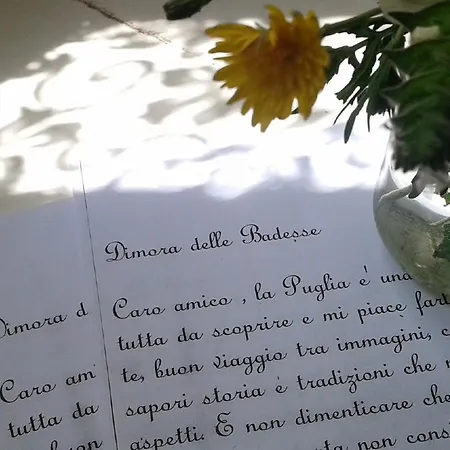 Dimora delle Badesse
Caro amico, la Puglia è una
tutta da scoprire e mi piace
te, buon viaggio tra immagini,
sapori storia e tradizioni che
aspetti. E non dimenticare che
non
Dimora d
Caro am
tutta da
buon